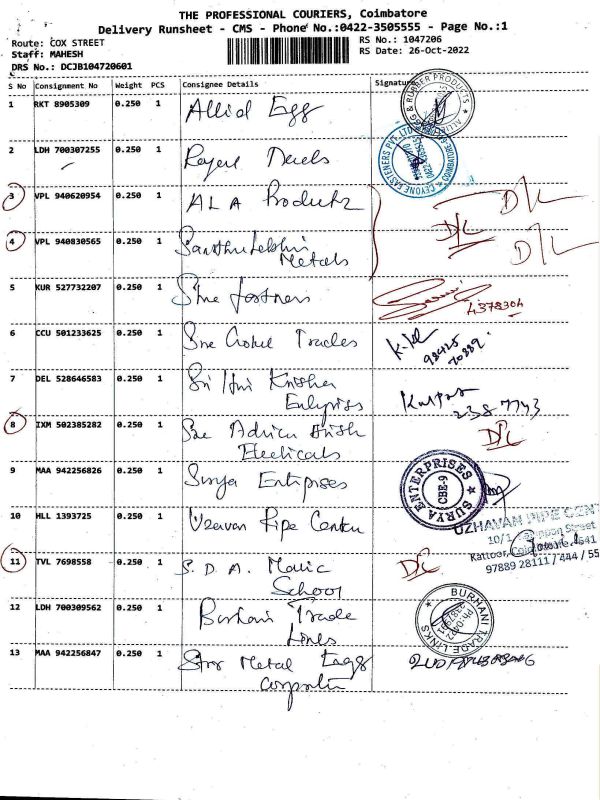 THE PROFESSIONAL COURIERS, Coimbatore
Delivery Runsheet - CMS - Phone No.:0422-3505555 - Page No.:1
Route: COX STREET
RS No.: 1047206
Staff: MAHESH
RS Date: 26-Oct-2022
DRS No.: DCJB104720601
S No Consignment No Weight PCS Consignee Details Signature
1 RKT 8905309 0.250 1 Allied Egg
2 LDH 700307255 0.250 1
3 VPL 940620954 0.250 1 ALA Products D/L
4 VPL 940830565 0.250 1 Metals D/L D/L
5 KUR 527732207 0.250 1 4378304
6 CCU 501233625 0.250 1 Sre Gokul Trades
98425
70889
7 DEL 528646583 0.250 1 Sri Hari Krishna
Enterprises
238 7743
8 IXM 502385282 0.250 1 Sre
Electricals D/L
9 MAA 942256826 0.250 1 Surya Enterprises
SURYA ENTERPRISES CBE-9
10 HLL 1393725 0.250 1 Uzavan Pipe Center
UZHAVAN PIPE CENT
10/1, Street
Kattoor, Coimbatore-641
97889 28111 / 444 / 55
11 TVL 7698558 0.250 1 S.D.A. Matric
School D/L
12 LDH 700309562 0.250 1 Burhani Trade
Links
BURHANI TRADE LINKS
13 MAA 942256847 0.250 1 Star Metal Eggs
Corporation